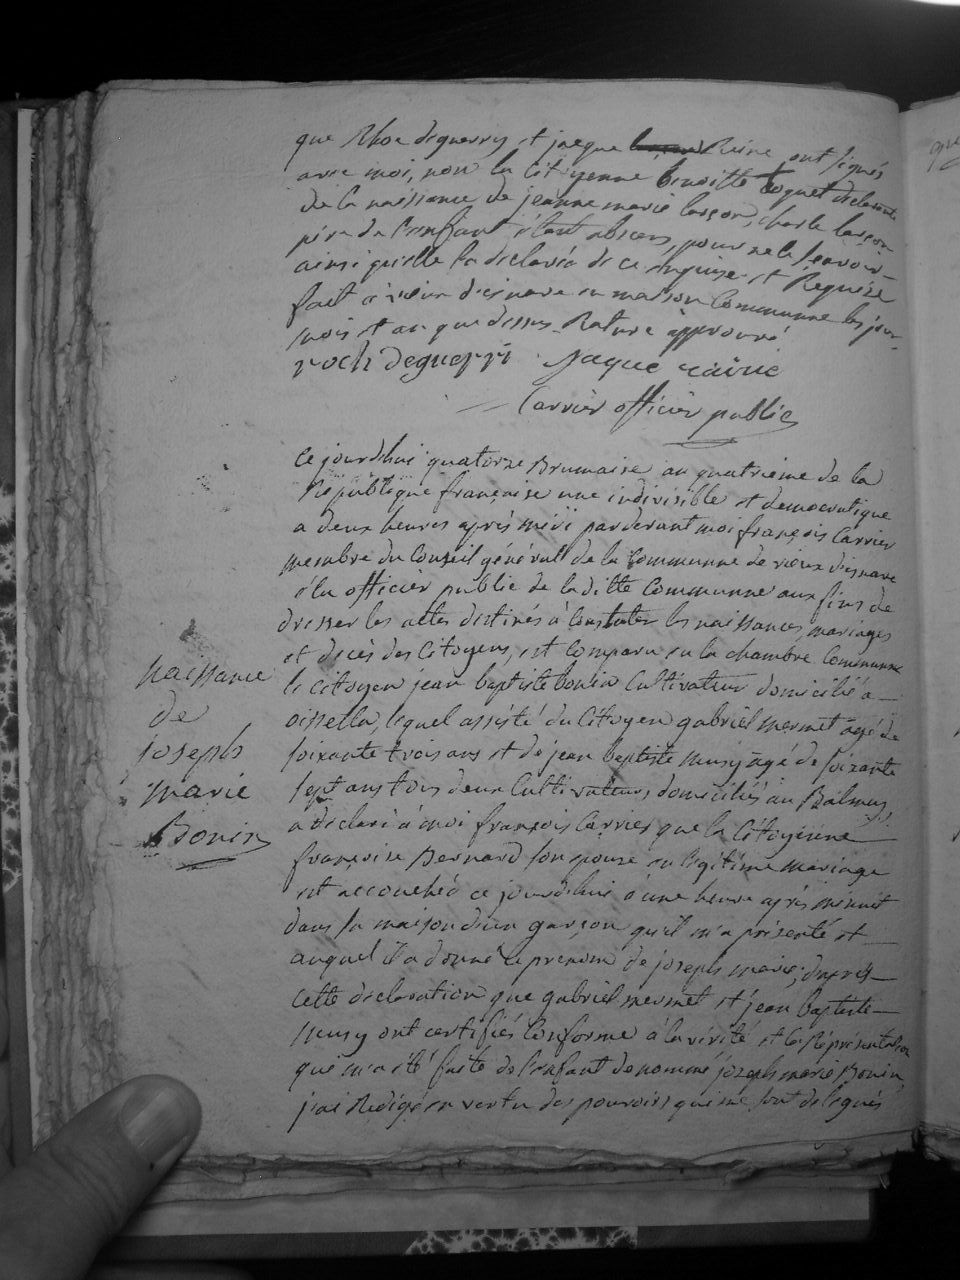 que Rhoc deguerry et jacque Reine ont signés
avec moi, non la Citoyenne benoitte Coquet declarante
de la naissance de jeanne marie larçon, charle larçon
père de l'enfant étant absens, pour ne le sçavoir
ainsi quelle la declaré de ce enquise et Requise
fait à vieu d'isenave en maison Commune les jour
mois et an que dessus. Rature approuvé
roch deguerri jaque raine
Carrier officier public
Ce jourdhui quatorze Brumaire an quatrieme de la
République françoise une indivisible et democratique
a deux heures après midi par devant moi françois Carrier
membre du Conseil général de la Commune de vieux d'isnave
élu officier public de la ditte Commune aux fins de
dresser les actes destinés à Constater les naissances, mariages
et décès des Citoyens, est Comparu en la chambre Commune
le Citoyen jean baptiste bonin Cultivateur domicilié a
oissella, lequel assisté du Citoyen gabriel mermet agé de
soixante trois ans et de jean baptiste musy agé de soixante
sept ans tous deux Cultivateurs domiciliés au Balmay,
a declaré à moi françois Carrier que la Citoyenne
françoise Bernard son epouse en legitime mariage
est accouchée ce jourdhui à une heure après minuit
dans sa maison d'un garçon qu'il m'a présenté et
auquel il a donné le prenom de joseph marie; d'après
cette declaration que gabriel mermet et jean baptiste
musy ont certifiés Conforme à la vérité et la Représentation
qui m'a été faite de l'enfant denommé joseph marie Bonin,
j'ai Redigé en vertu des pouvoirs qui me sont delegués
naissance
de
joseph
marie
Bonin